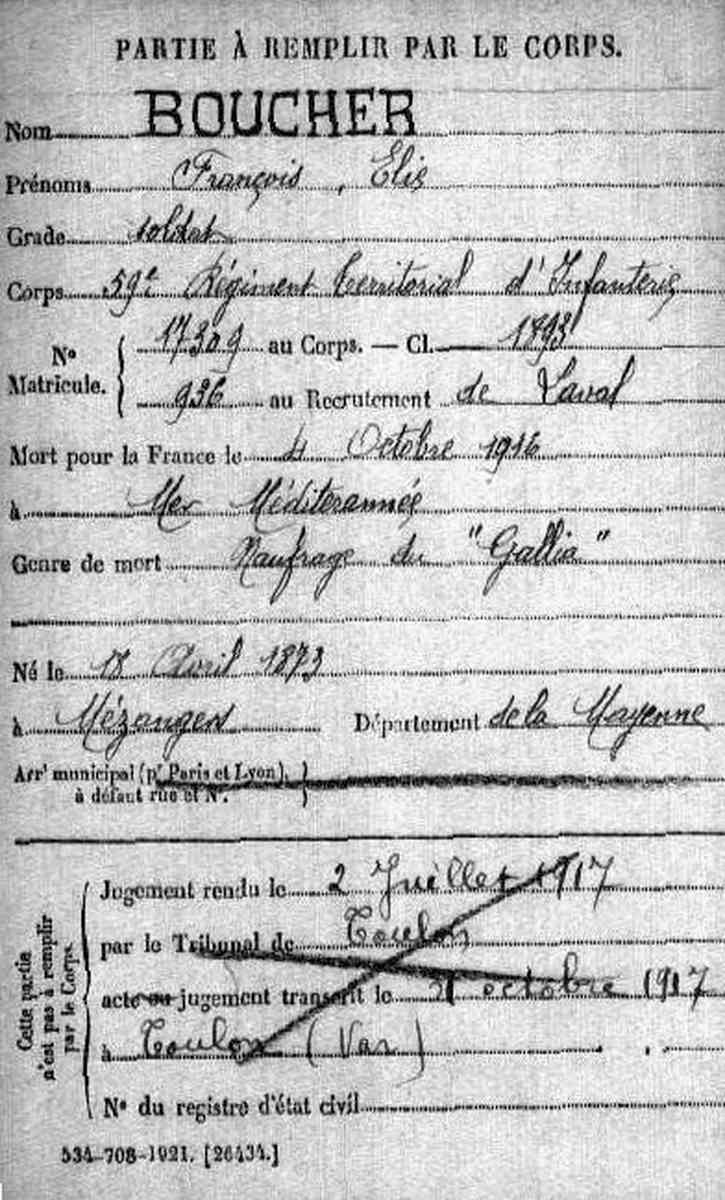 PARTIE À REMPLIR PAR LE CORPS.
Nom BOUCHER
Prénoms François, Elie
Grade soldat
Corps 59e Régiment Territorial d'Infanterie
No Matricule. { 17309 au Corps. — Cl. 1893
936 au Recrutement de Laval
Mort pour la France le 4 Octobre 1916
à Mer Méditerannée
Genre de mort Naufrage du "Gallia"
Né le 18 Avril 1873
à Mézangers Département de la Mayenne
Arrt municipal (pr Paris et Lyon), }
à défaut rue et No.
Cette partie n'est pas à remplir par le Corps.
Jugement rendu le 2 Juillet 1917
par le Tribunal de Toulon
acte ou jugement transcrit le octobre 1917
à Toulon (Var)
No du registre d'état civil
534-708-1921. [26434.]